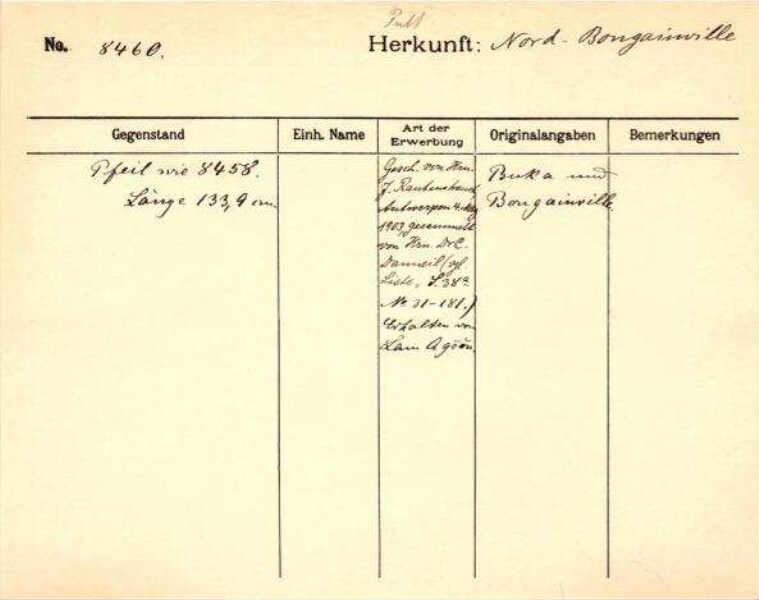 No. 8460.
Herkunft: Nord-Bougainville
Gegenstand
Einh. Name
Art der Erwerbung
Originalangaben
Bemerkungen
Pfeil wie 8458.
Länge 133,9 cm.
Gesch. von Hrn.
J. Rautenstrauch
Antwerpen 4. May
1903, gesammelt
von Hrn. Dr C.
Danneil (vgl.
Liste, S. 38a
No 31-181.)
Erhalten von
Lam Agöön.
Buka und
Bougainville.